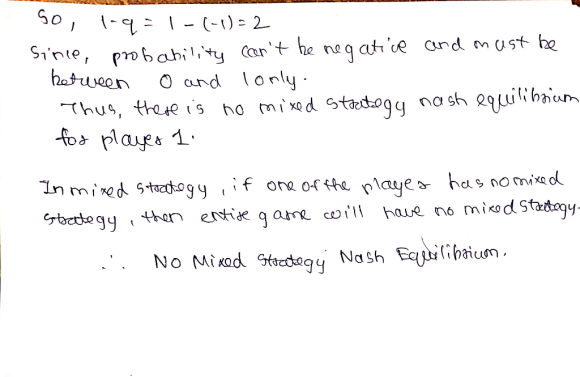 So, 1-q = 1-(-1) = 2
Since, probability can't be negative and must be
between 0 and 1 only.
Thus, there is no mixed strategy nash equilibrium
for player 1.
In mixed strategy, if one of the player has no mixed
strategy, then entire game will have no mixed strategy.
∴ No Mixed Strategy Nash Equilibrium.